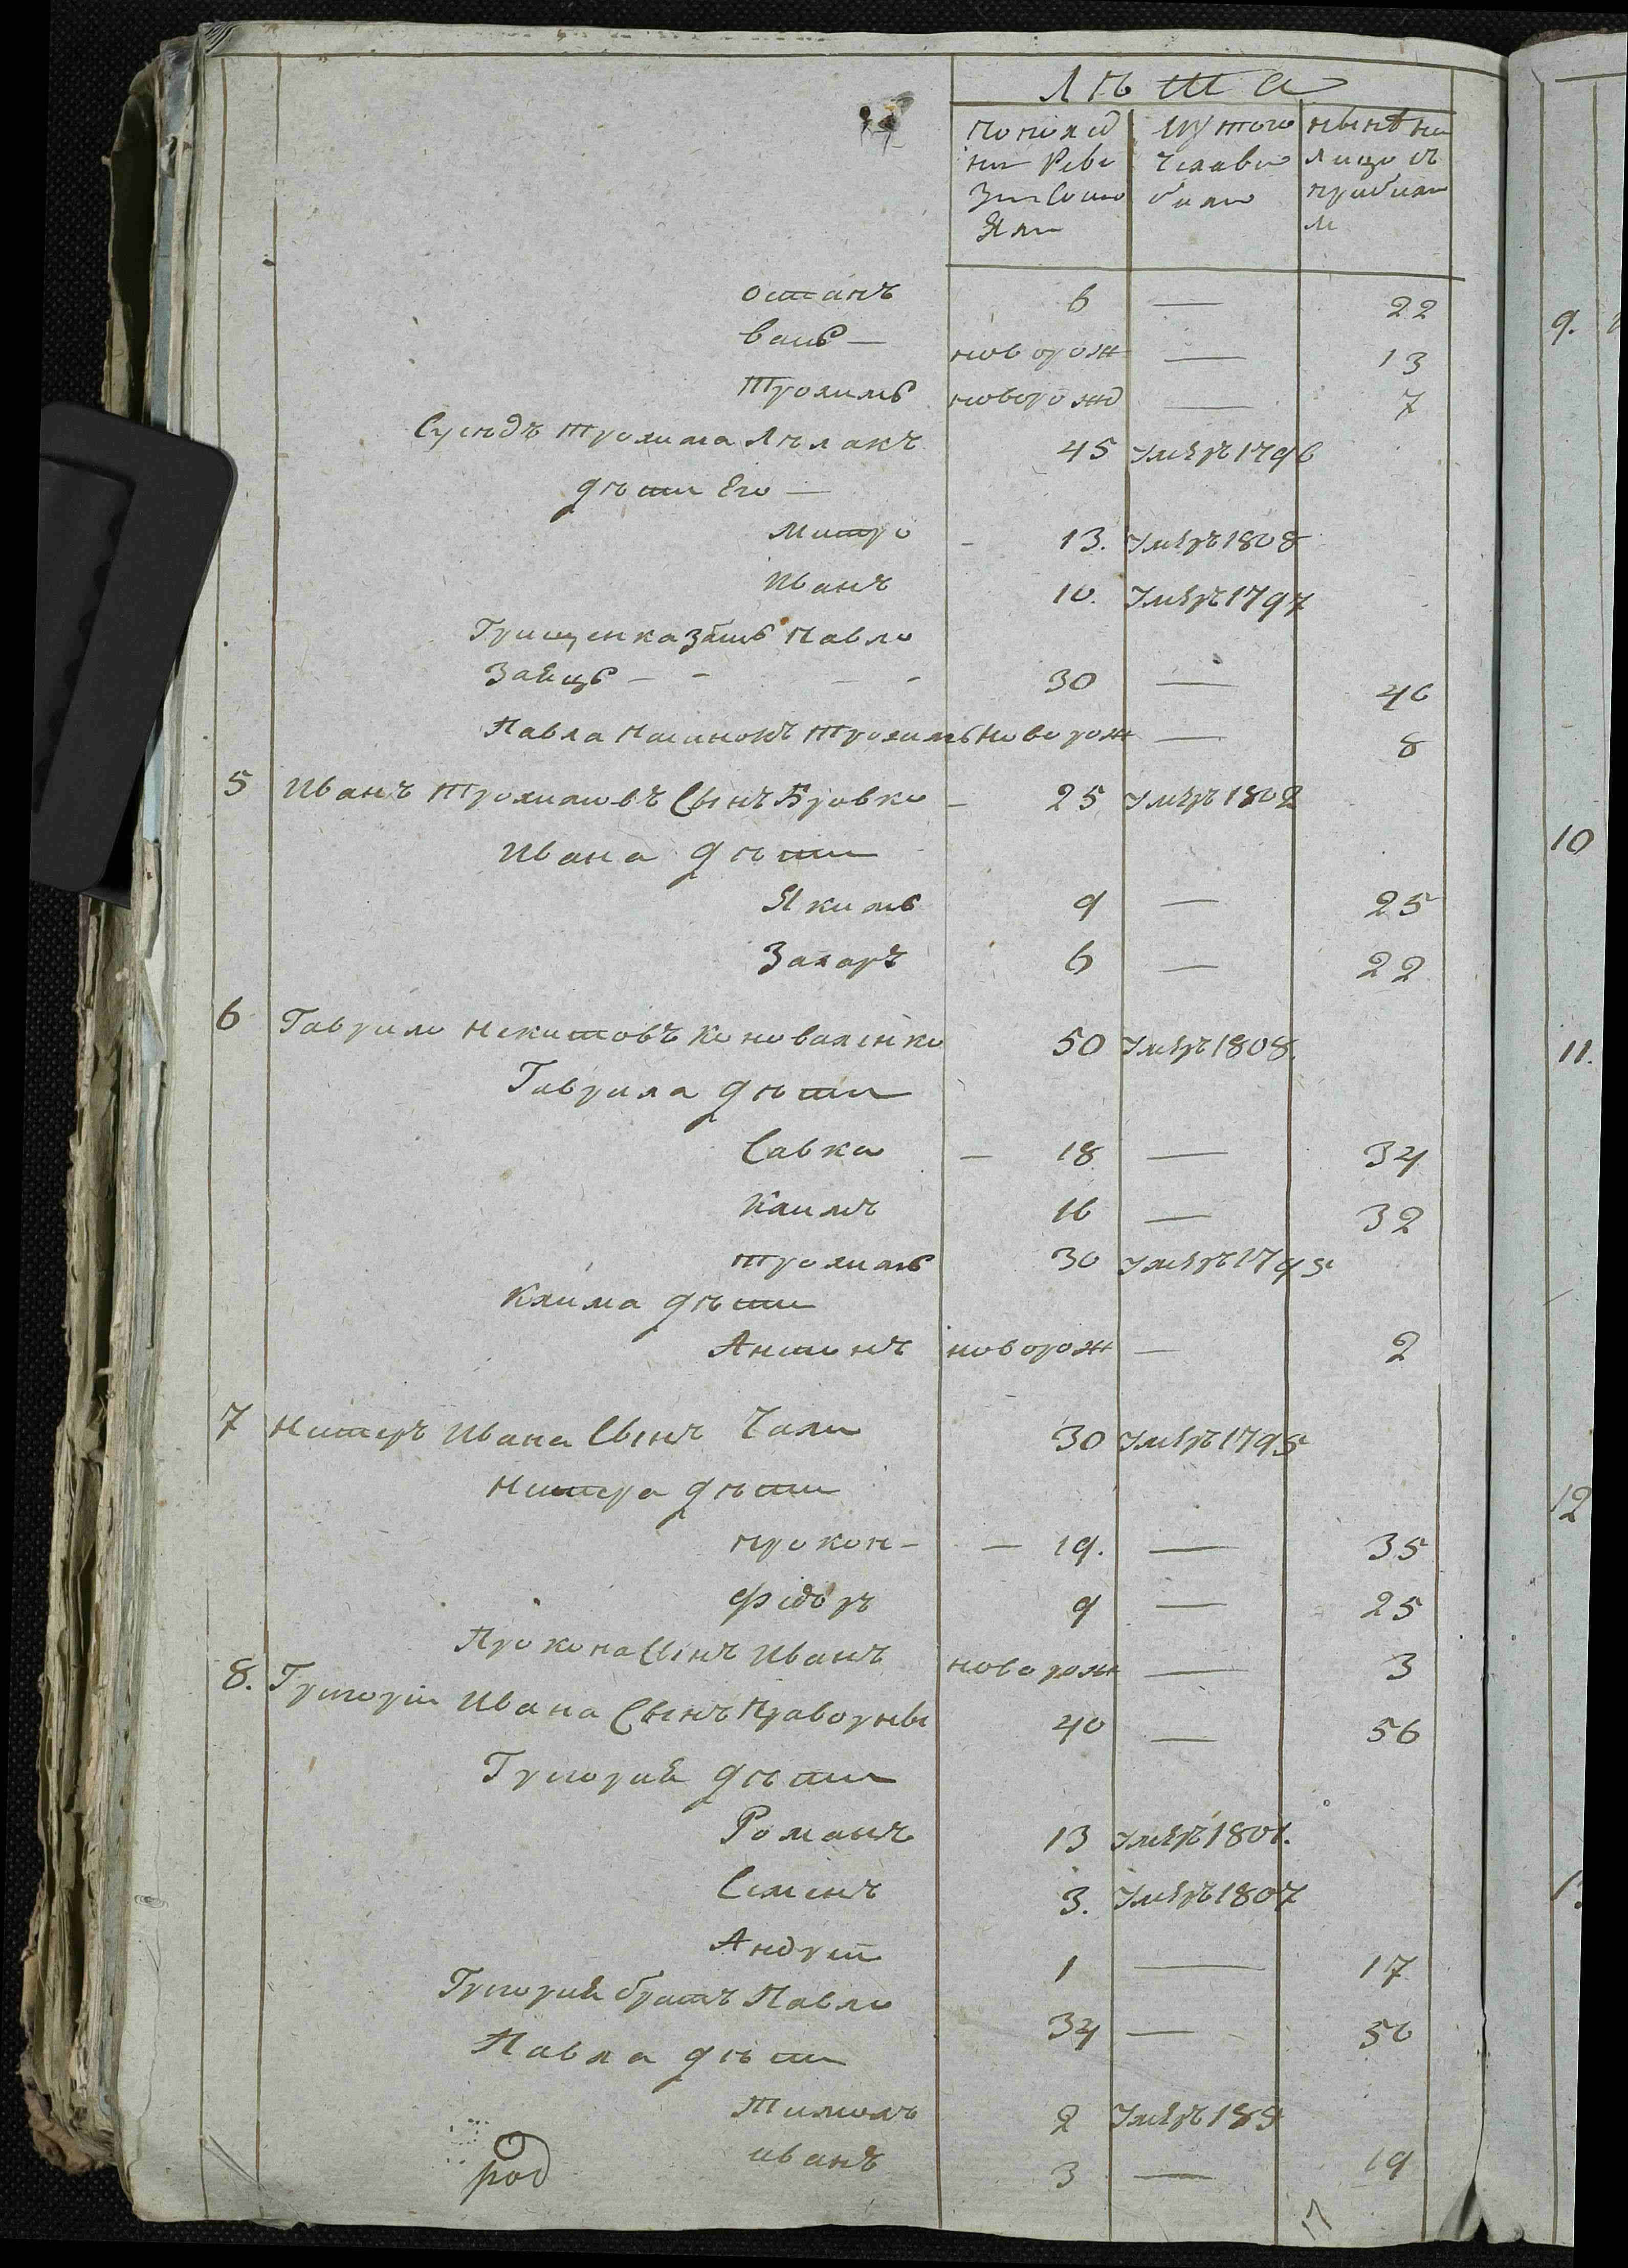 лѣта
По послѣд ней Реви Зіи Состо Яли
Изъ того числа вы было
нынѣ на лицо съ прибыли ми
Остапъ 6 — 22
Васъ — новорож — 13
Трохимъ новорожд — 7
Сусѣдъ Трохима 45 Умеръ 1796
дѣти Его —
Митро — 13. Умеръ 1808
Иванъ 10. Умеръ 1797
Грищенка Зать Павло
Заецъ — — — — 30 — 46
Павла Пасинокъ Трохимъ Новорож — 8
5 Иванъ Трохимовъ Сынъ Бровко — 25 Умеръ 1802
Ивана дѣти
Якимъ 9 — 25
Захаръ 6 — 22
6 Гаврило Никитовъ Коноваленко 50 Умеръ 1808.
Гаврила дѣти
Савка — 18 — 34
Климъ 16 — 32
Трохимъ 30 Умеръ 1795
Клима дѣти
Антонъ новорож — 2
7 Нестеръ Ивана Сынъ Чали 30 Умеръ 1795
Нестера дѣти
Прокоп — — 19. — 35
Федоръ 9 — 25
Прокопа Сынъ Иванъ новорож — 3
8. Григорій Ивана Сынъ 40 — 56
Григорія дѣти
Романъ 13 Умеръ 1801.
Семенъ 3. Умеръ 1807
Андрей 1 — 17
Григорія братъ Павло 34 — 50
Павла дѣти
2 Умеръ 189
иванъ 3 — 19
род
17
9.
10
11.
12